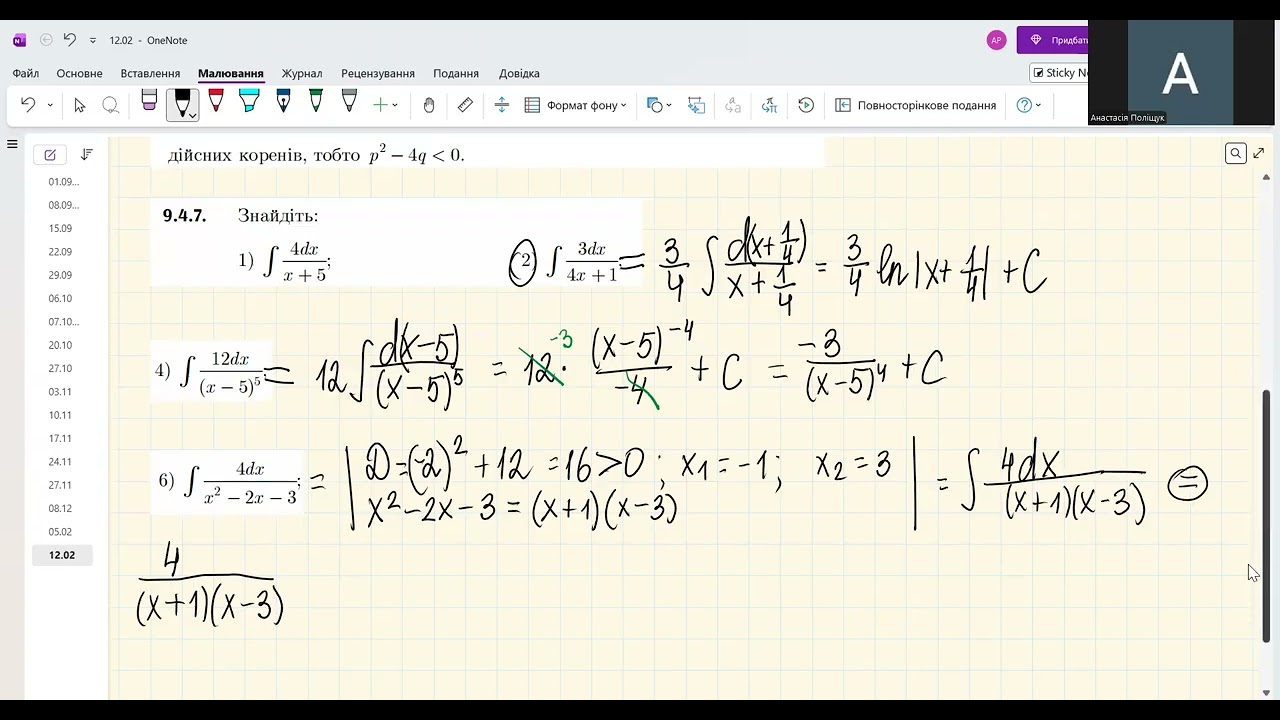 12.02 - OneNote
АР
Придбати
А
Анастасія Поліщук
Файл Основне Вставлення Малювання Журнал Рецензування Подання Довідка
Sticky No
Формат фону
Повносторінкове подання
01.09...
08.09...
15.09
22.09
29.09
06.10
07.10...
20.10
27.10
03.11
10.11
17.11
24.11
27.11
08.12
05.02
12.02
дійсних коренів, тобто p² − 4q < 0.
9.4.7. Знайдіть:
1) ∫ 4dx/(x + 5); 2) ∫ 3dx/(4x + 1) = 3/4 ∫ d(x + 1/4)/(x + 1/4) = 3/4 ln|x + 1/4| + C
4) ∫ 12dx/(x − 5)⁵; = 12 ∫ d(x−5)/(x−5)⁵ = 12 · -3 (x−5)⁻⁴/−4 + C = −3/(x−5)⁴ + C
6) ∫ 4dx/(x² − 2x − 3); = | D = (-2)² + 12 = 16 > 0 ; x₁ = −1 ; x₂ = 3 | = ∫ 4dx/((x+1)(x−3)) =
x² − 2x − 3 = (x+1)(x−3)
4/((x+1)(x−3))